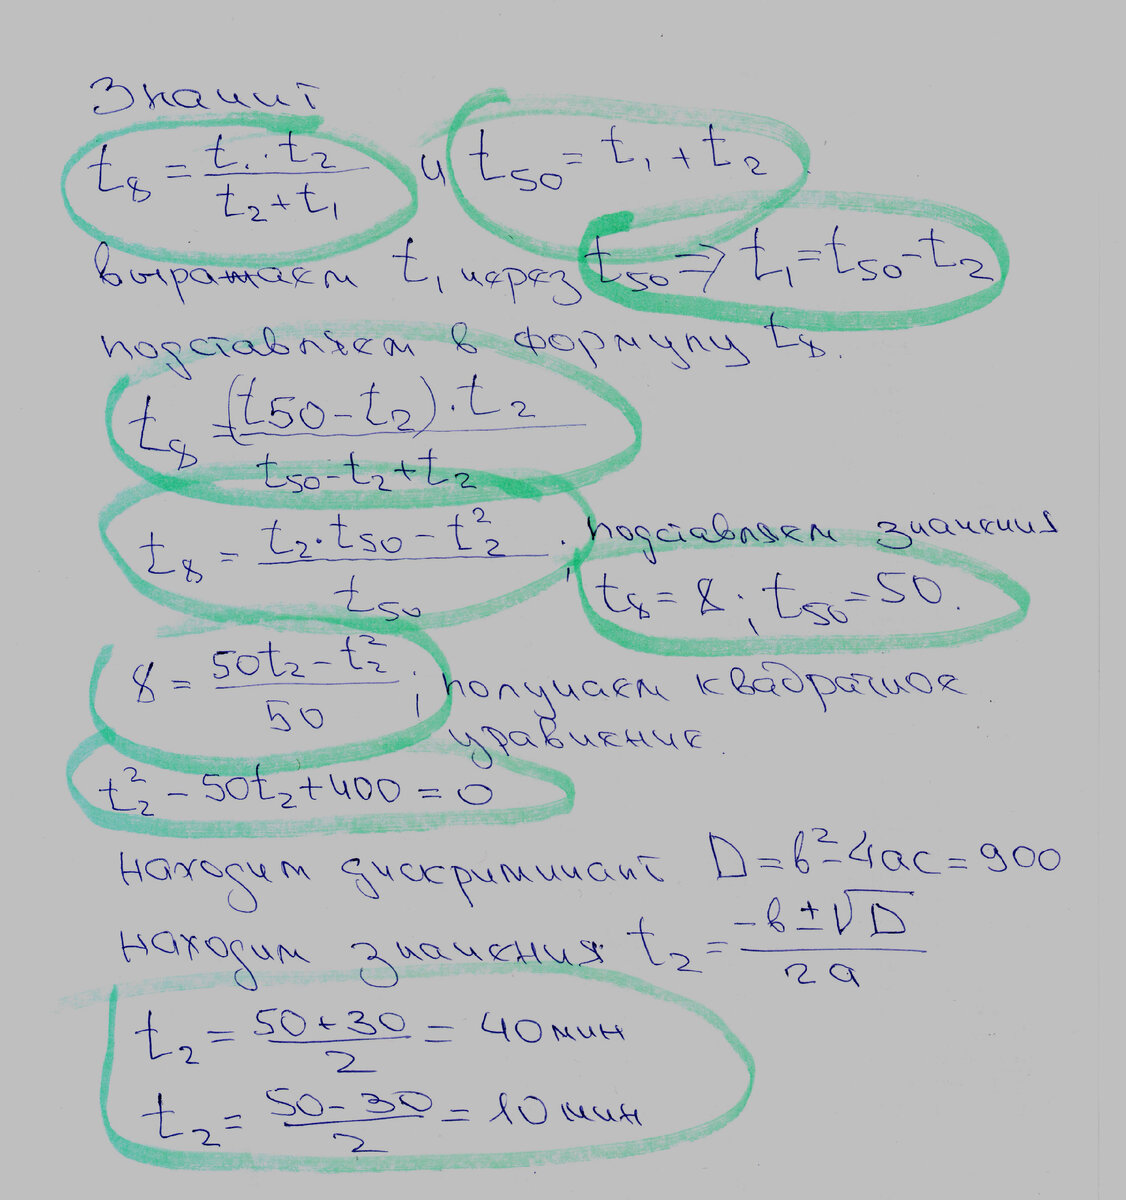 Значит
t₈ = t₁·t₂ / t₂+t₁ и t₅₀ = t₁ + t₂.
выражаем t₁ через t₅₀ ⇒ t₁ = t₅₀ - t₂
подставляем в формулу t₈.
t₈ = (t50 - t₂)·t₂ / t₅₀ - t₂ + t₂
t₈ = t₂·t₅₀ - t₂² / t₅₀ ; подставляем значения
t₈ = 8 ; t₅₀ = 50.
8 = 50t₂ - t₂² / 50 ; получаем квадратное
уравнение
t₂² - 50t₂ + 400 = 0
находим дискриминант D = в² - 4ac = 900
находим значения t₂ = -в ± √D / 2a
t₂ = 50 + 30 / 2 = 40 мин
t₂ = 50 - 30 / 2 = 10 мин